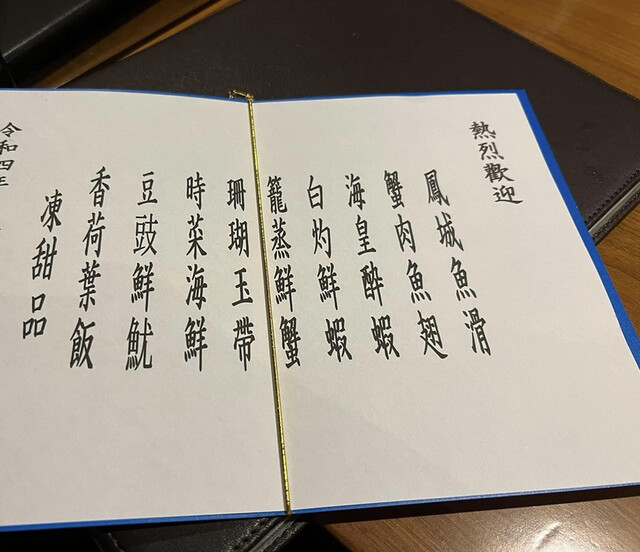 熱烈歡迎
鳳城魚滑
蟹肉魚翅
海皇酔蝦
白灼鮮蝦
籠蒸鮮蟹
珊瑚玉帶
時菜海鮮
豆豉鮮魷
香荷葉飯
凍甜品
令和四年